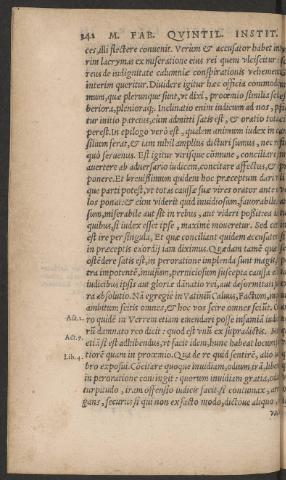 342 M. FAB. QUINTIL. INSTIT.
ces, illi flectere convenit. Verùm & accusator habet in
rim lacrymas ex miseratione eius rei quem ulciscitur:
reus de indignitate calumniæ conspirationis vehement
interim queritur. Dividere igitur hæc officia commod
mum, quæ plerunque sunt, ut dixi, proœmio similia sed
beriora, plenioraq́. Inclinatio enim iudicum ad nos, p
tur initio parcius, cùm admitti satis est, & oratio tota
perest. In epilogo verò est, qualem animum iudex in co
silium ferat, & iam nihil amplius dicturi sumus, nec re
quò servemus. Est igitur utrisque cōmune, conciliare
avertere ab adversario iudicem, concitare affectus, &
ponere. Et brevissimum quidem hoc præceptum dari
que parti potest, ut totas caussæ suæ vires orator ante
los ponat: & cùm viderit quid invidiosum, favorabile,
sum, miserabile aut sit in rebus, aut videri possit: ea
quibus, si iudex esset ipse, maximè moveretur. Sed
est ire per singula. Et quæ concilient quidem accusatorem
in præceptis exordij iam diximus. Quædam tamē quæ
ostēdere satis est, in peroratione implenda sunt magis,
tra impotentē, invisum, perniciosum suscepta caussa
iudicibus ipsis aut gloria dānatio rei, aut deformitas
ra absolutio. Nā egregiè in Vatiniū Calvus, Factum, in
ambitum scitis omnes, & hoc vos scire omnes sciūt.
Act.1. ro quidē in Verrem etiam emendari posse infamiā iud
rū damnato reo dicit: quod est unū ex supradictis.
Act.7. etiā si est adhibendus, ut facit idem, hunc habet locum
Lib.4. tiorē quàm in proœmio. Qua de re quid sentirē, alio
bro exposui. Cōcitare quoque invidiam, odium, irā, liber
in peroratione contingit: quorum invidiam gratia, od
turpitudo, iram offensio iudici facit, si contumax, ar
gans, securus si qui non ex facto modo, dictove aliquo,